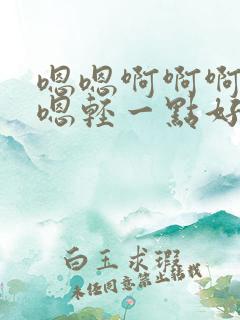 嗯嗯啊啊啊
嗯轻一點好
白玉求瑕
未经同意禁止转载